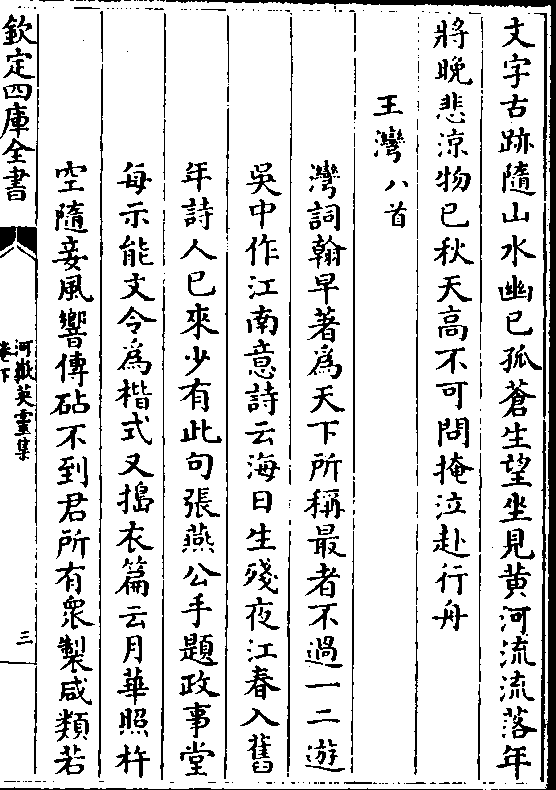 文字古跡隨山水幽已孤蒼生望坐見黄河流流落年
將晚悲涼物已秋天高不可問掩泣赴行舟
王灣八首
灣詞翰早著為天下所稱最者不過一二遊
吳中作江南意詩云海日生殘夜江春入舊
年詩人已來少有此句張燕公手題政事堂
每示能文令為楷式又搗衣篇云月華照杵
空隨妾風響傳砧不到君所有衆製咸類若
欽定四庫全書
河嶽英靈集
卷下
三